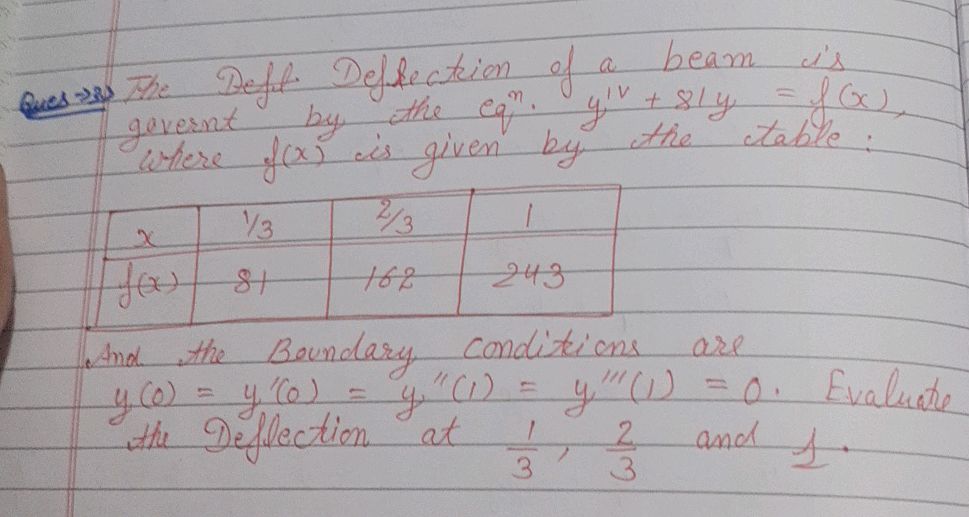 Ques → 8) The Deff Deflection of a beam is
governt by the eqⁿ. yⁱᵛ + 81y = f(x),
where f(x) is given by the table :
x 1/3 2/3 1
f(x) 81 162 243
And the Boundary conditions are
y(0) = y'(0) = y''(1) = y'''(1) = 0. Evaluate
the Deflection at 1/3, 2/3 and 1.